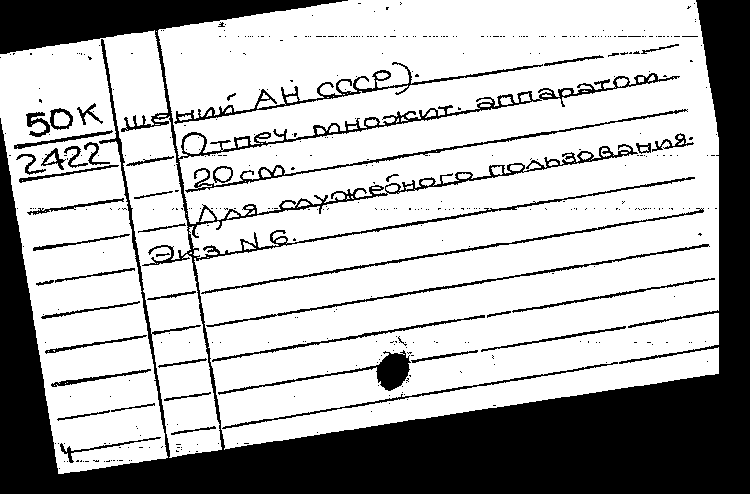 50К
2422
щений АН СССР).
Отпеч. множит. аппаратом.
20 см.
Для служебного пользования.
Экз. N 6.
4